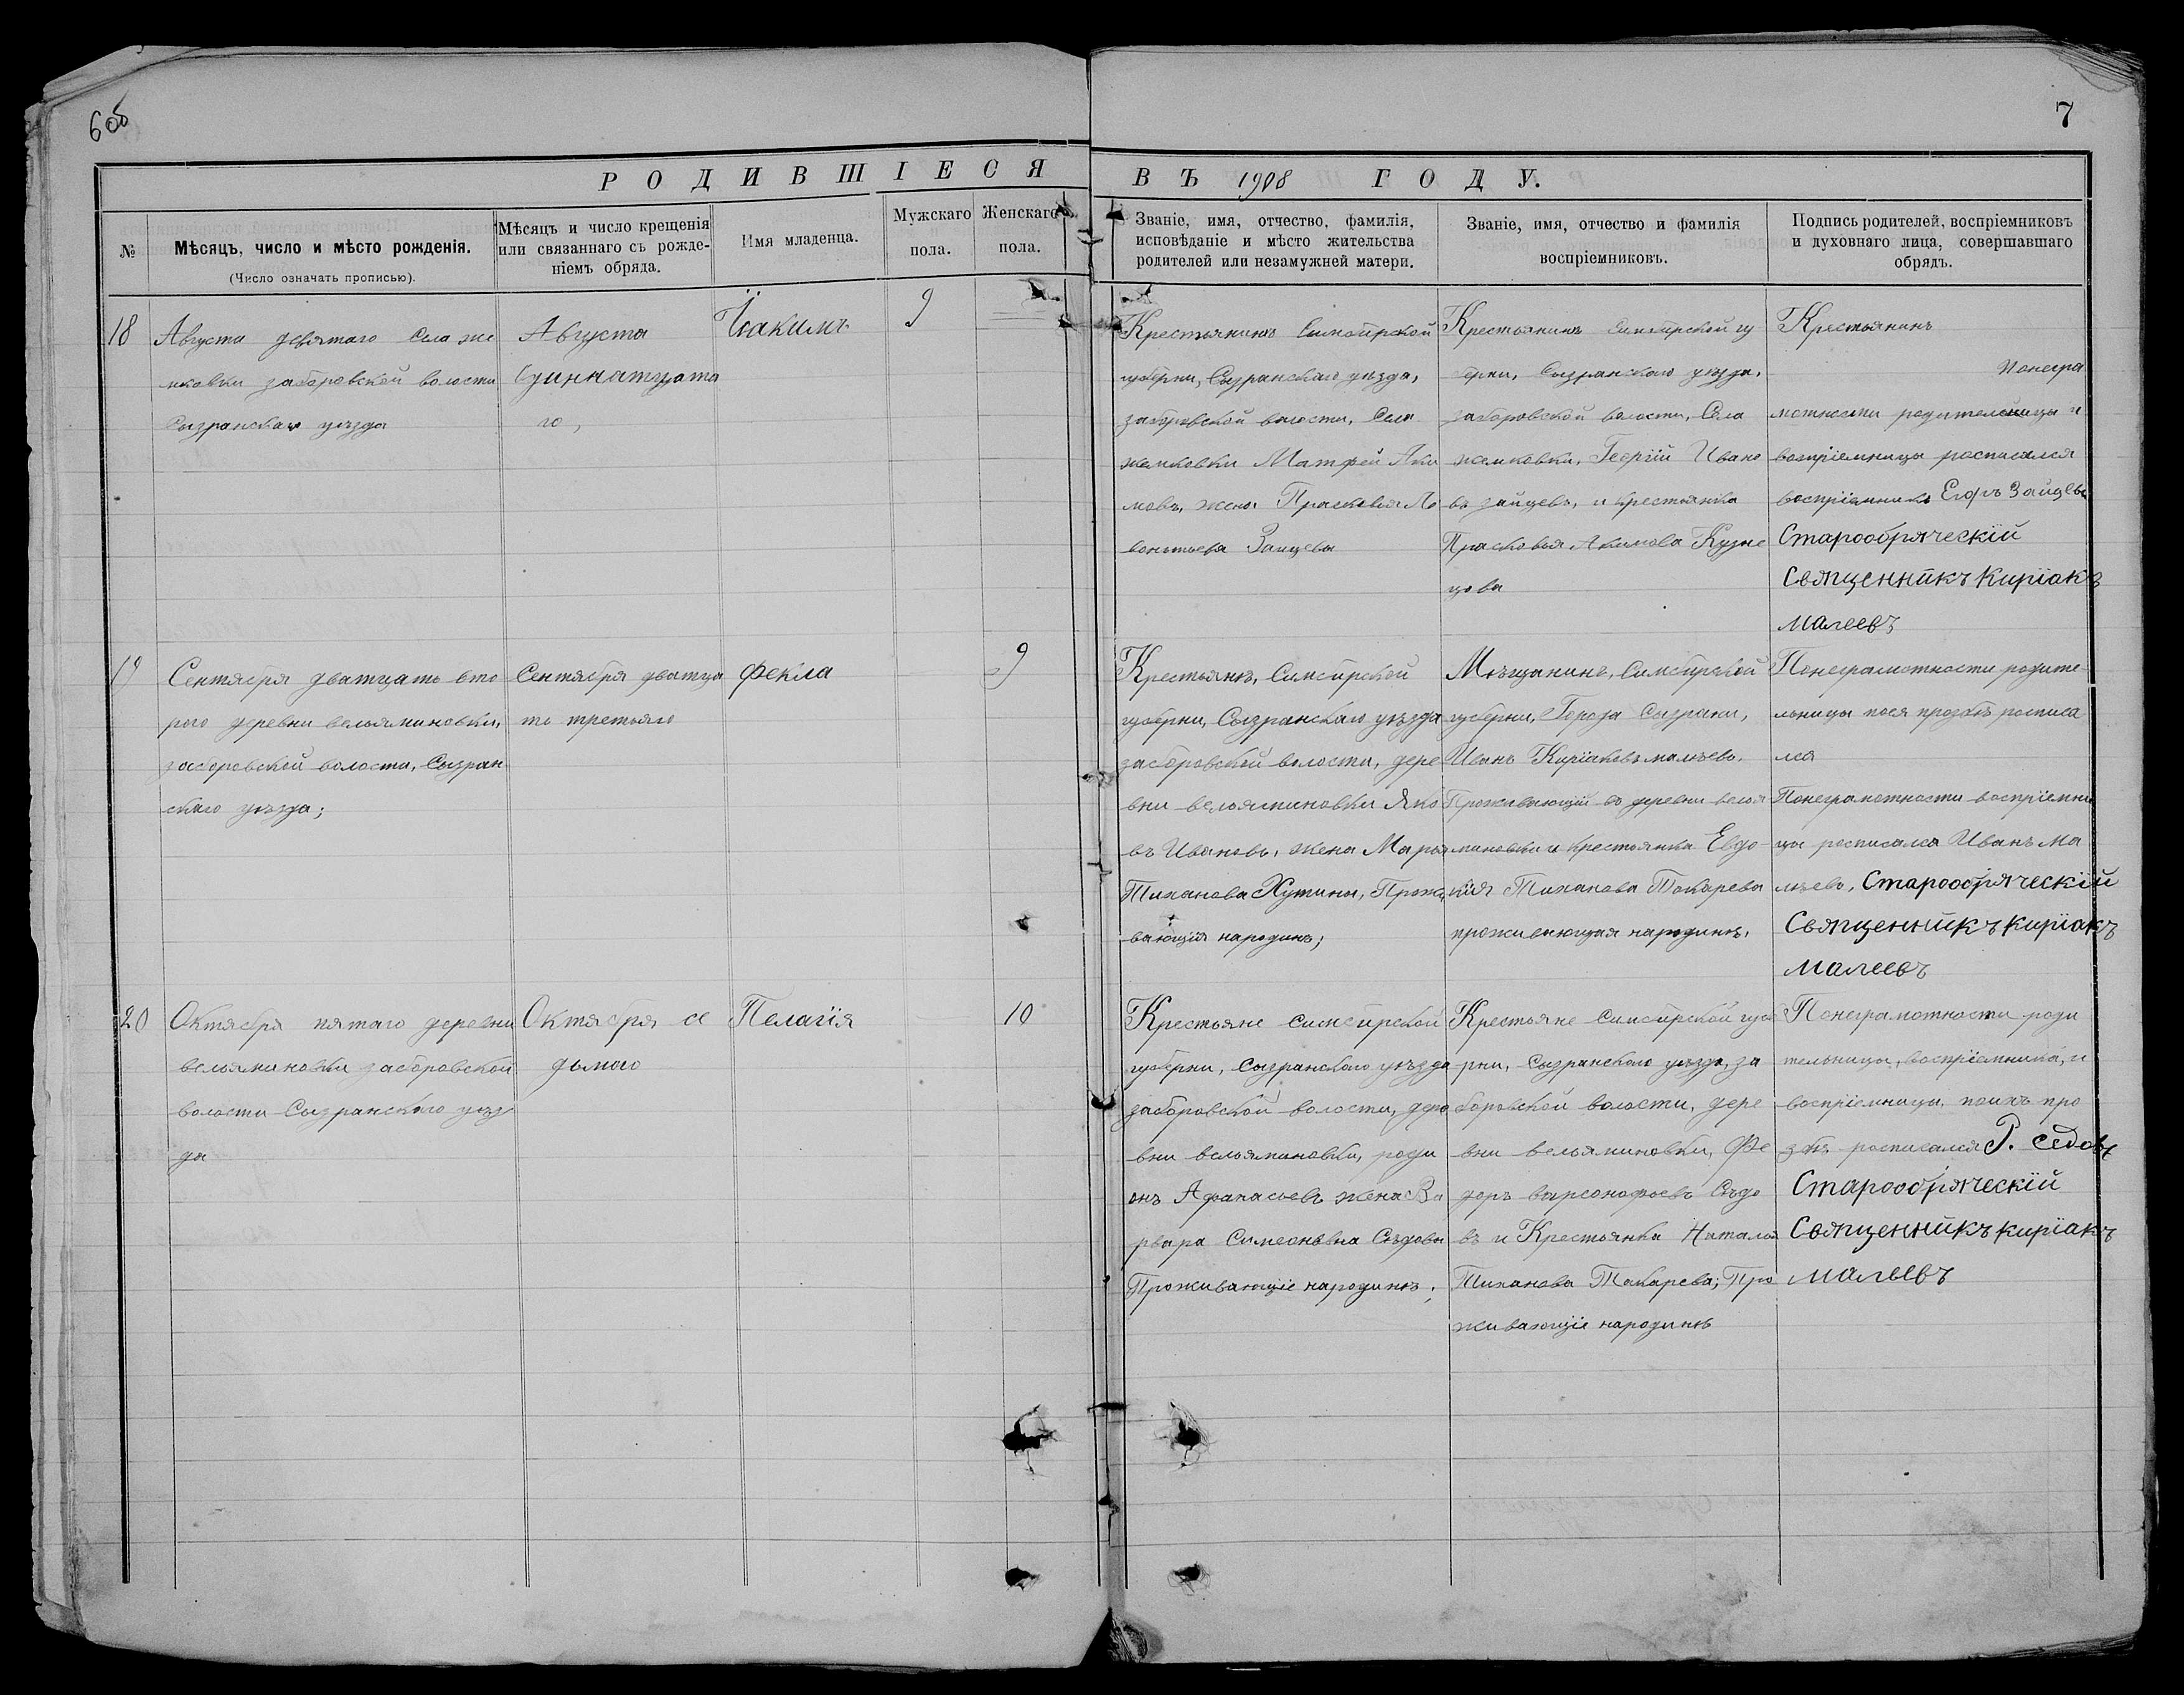 6об
7
РОДИВШІЕСЯ ВЪ 1908 ГОДУ.
№
Мѣсяцъ, число и мѣсто рожденія.
(Число означать прописью).
Мѣсяцъ и число крещенія
или связаннаго съ рожде-
ніемъ обряда.
Имя младенца.
Мужскаго
пола.
Женскаго
пола.
Званіе, имя, отчество, фамилія,
исповѣданіе и мѣсто жительства
родителей или незамужней матери.
Званіе, имя, отчество и фамилія
воспріемниковъ.
Подпись родителей, воспріемниковъ
и духовнаго лица, совершавшаго
обрядъ.
18
Августа девятаго Села же
мковки заборовской волости
Сызранскаго уѣзда
Августа
Одиннатцата
го,
Їоакимъ
9
Крестьянинъ Симбирской
губерни, Сызранскаго уѣзда,
заборовской волости, Села
жемковки Матфей Аки
мовъ, жена Прасковья Ле
вонтьева Зайцевы
Крестьянинъ Симбирской гу
берни, Сызранскаго уѣзда,
заборовской волости, Села
жемковки, Георгій Ивано
въ зайцевъ, и крестьянка
Прасковья Акимова Кузне
цова
Крестьянинъ
Понегра
мотности родительницы и
воспріемницы росписался
воспріемникъ Егоръ Зайцевъ
Старообряческій
Священникъ Киріакъ
Малеевъ
19
Сентября дватцать вто
рого деревни вельяминовки,
заборовской волости, Сызран
скаго уѣзда;
Сентября дватца
ть третьяго
Фекла
9
Крестьянѣ, Симбирской
губерни, Сызранскаго уѣзда
заборовской волости, дере
вни вельяминовки Яко
въ Ивановъ, жена Марья
Тиханова Хутины, Прожи
вающія народинѣ;
Мѣщанинъ, Симбирской
губерни, Города Сызрани,
Иванъ Киріаковъ малѣевъ,
Проживающій въ деревни велья
миновки и крестьянка Евдо
кия Тиханова Токарева
проживающая народинѣ,
Понеграмотности родите-
льницы поея прозбѣ росписа
лся
Понеграмотности воспріемни
цы росписался Иванъ Ма
лѣевъ, Старообряческій
Священникъ Киріакъ
Малеевъ
20
Октября пятаго деревни
вельяминовки заборовской
волости Сызранскаго уѣз
да
Октября се
дьмого
Пелагія
10
Крестьяне симбирской
губерни, Сызранскаго уѣзда
заборовской волости, дере
вни вельяминовки, роди
онъ Афанасьевъ жена Ва
рвара Симеоновна Сѣдовы
Проживающіе народинѣ;
Крестьяне Симбирской губе
рни, Сызранскаго уѣзда, за
боровской волости, дере
вни вельяминовки, Фе
доръ варсонофьевъ Сѣдо
въ и Крестьянка Наталья
Тиханова Токарева; Про
живающіе народинѣ
Понеграмотности роди
тельницы, воспріемника, и
воспріемницы, поихъ про
збѣ росписался Р. Седовъ
Старообряческій
Священникъ Киріакъ
Малеевъ